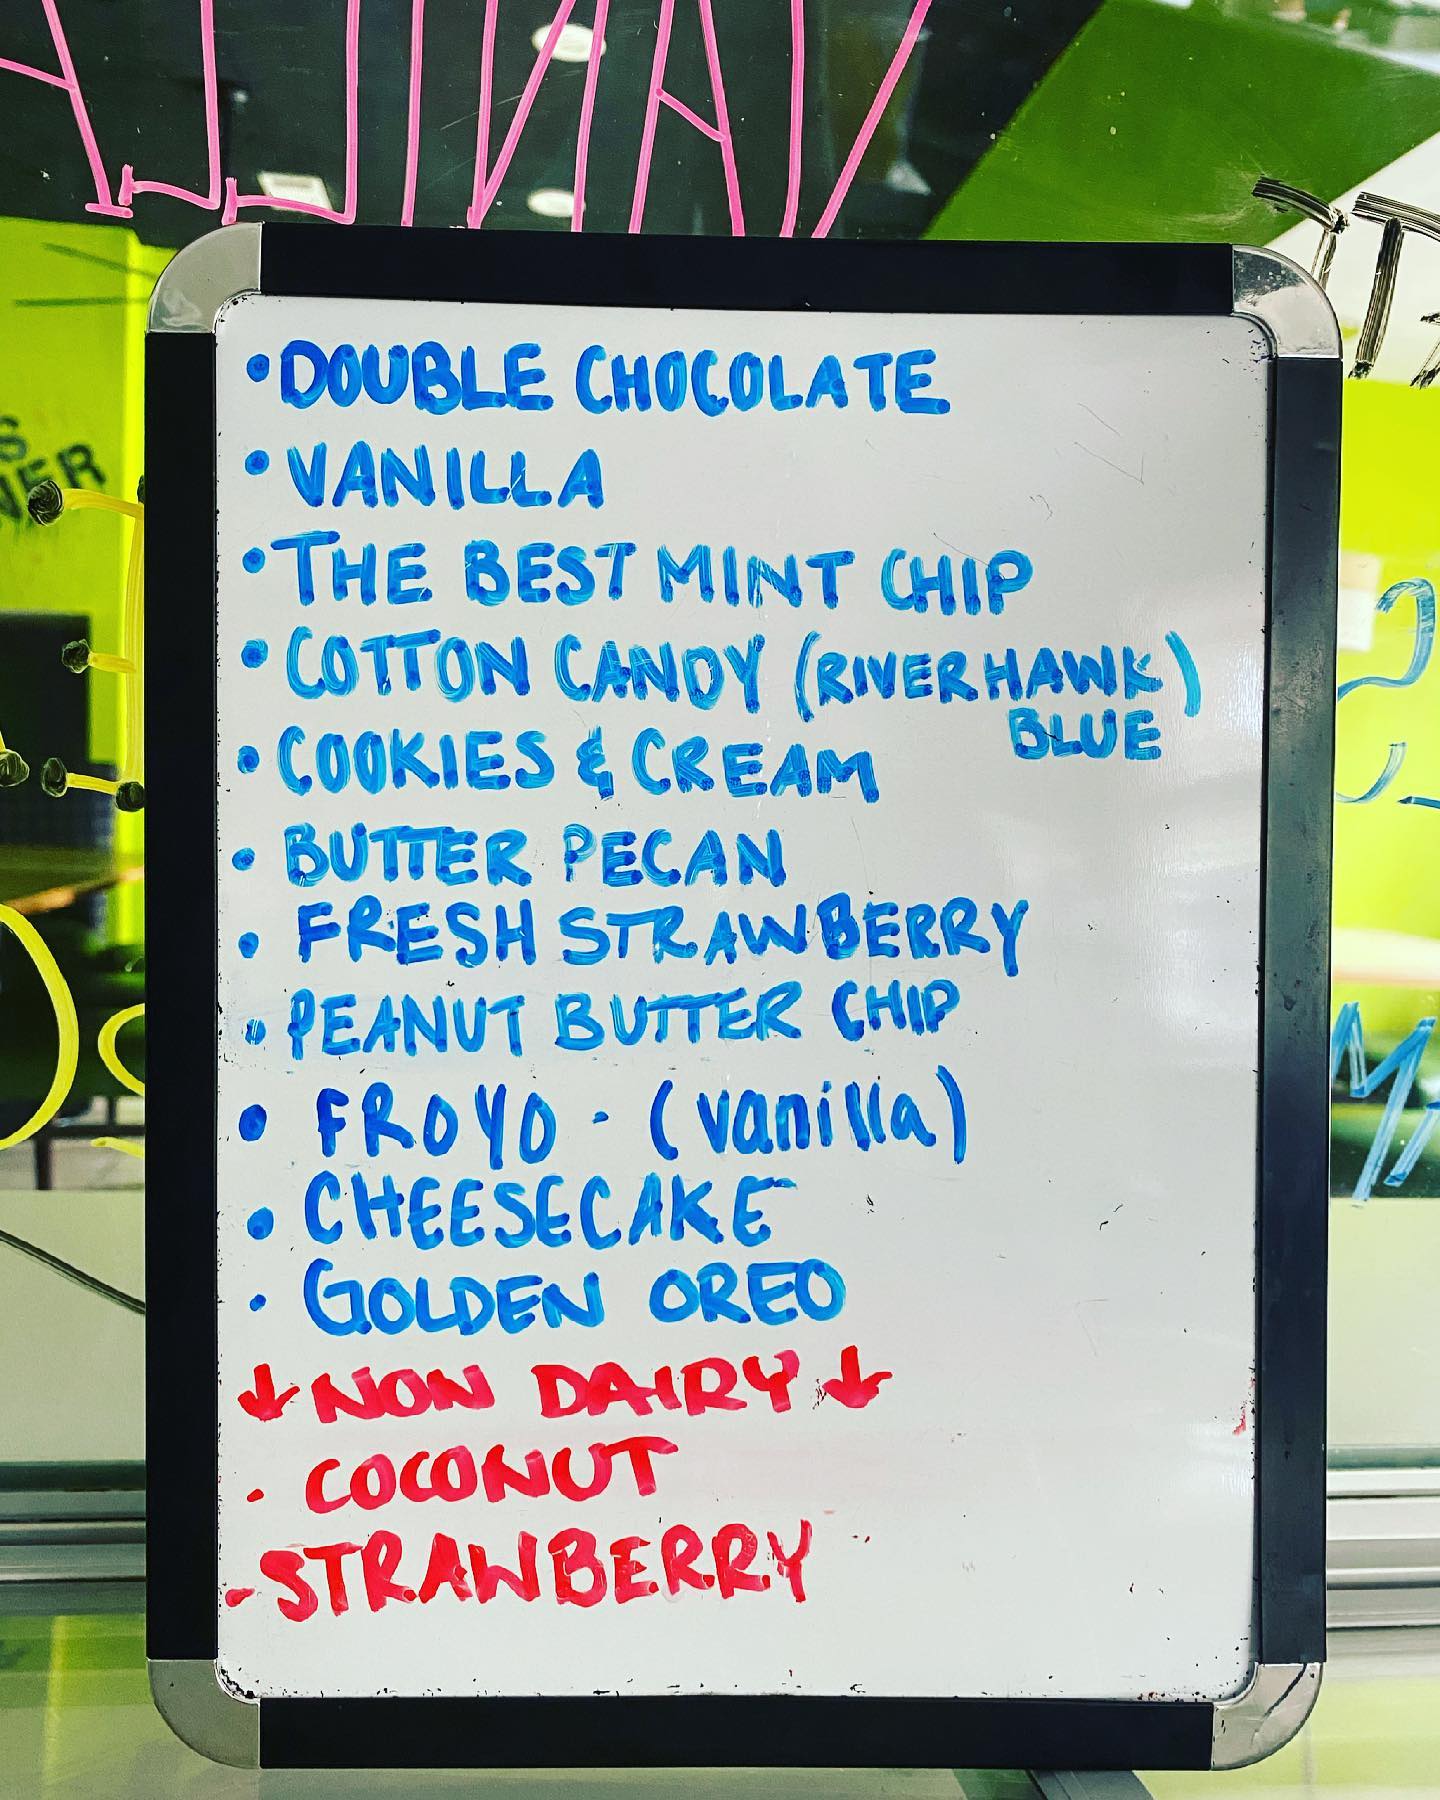 • DOUBLE CHOCOLATE
• VANILLA
• THE BEST MINT CHIP
• COTTON CANDY (RIVERHAWK)
BLUE
• COOKIES & CREAM
• BUTTER PECAN
• FRESH STRAWBERRY
• PEANUT BUTTER CHIP
• FROYO - (vanilla)
• CHEESECAKE
• GOLDEN OREO
↓ NON DAIRY ↓
• COCONUT
- STRAWBERRY